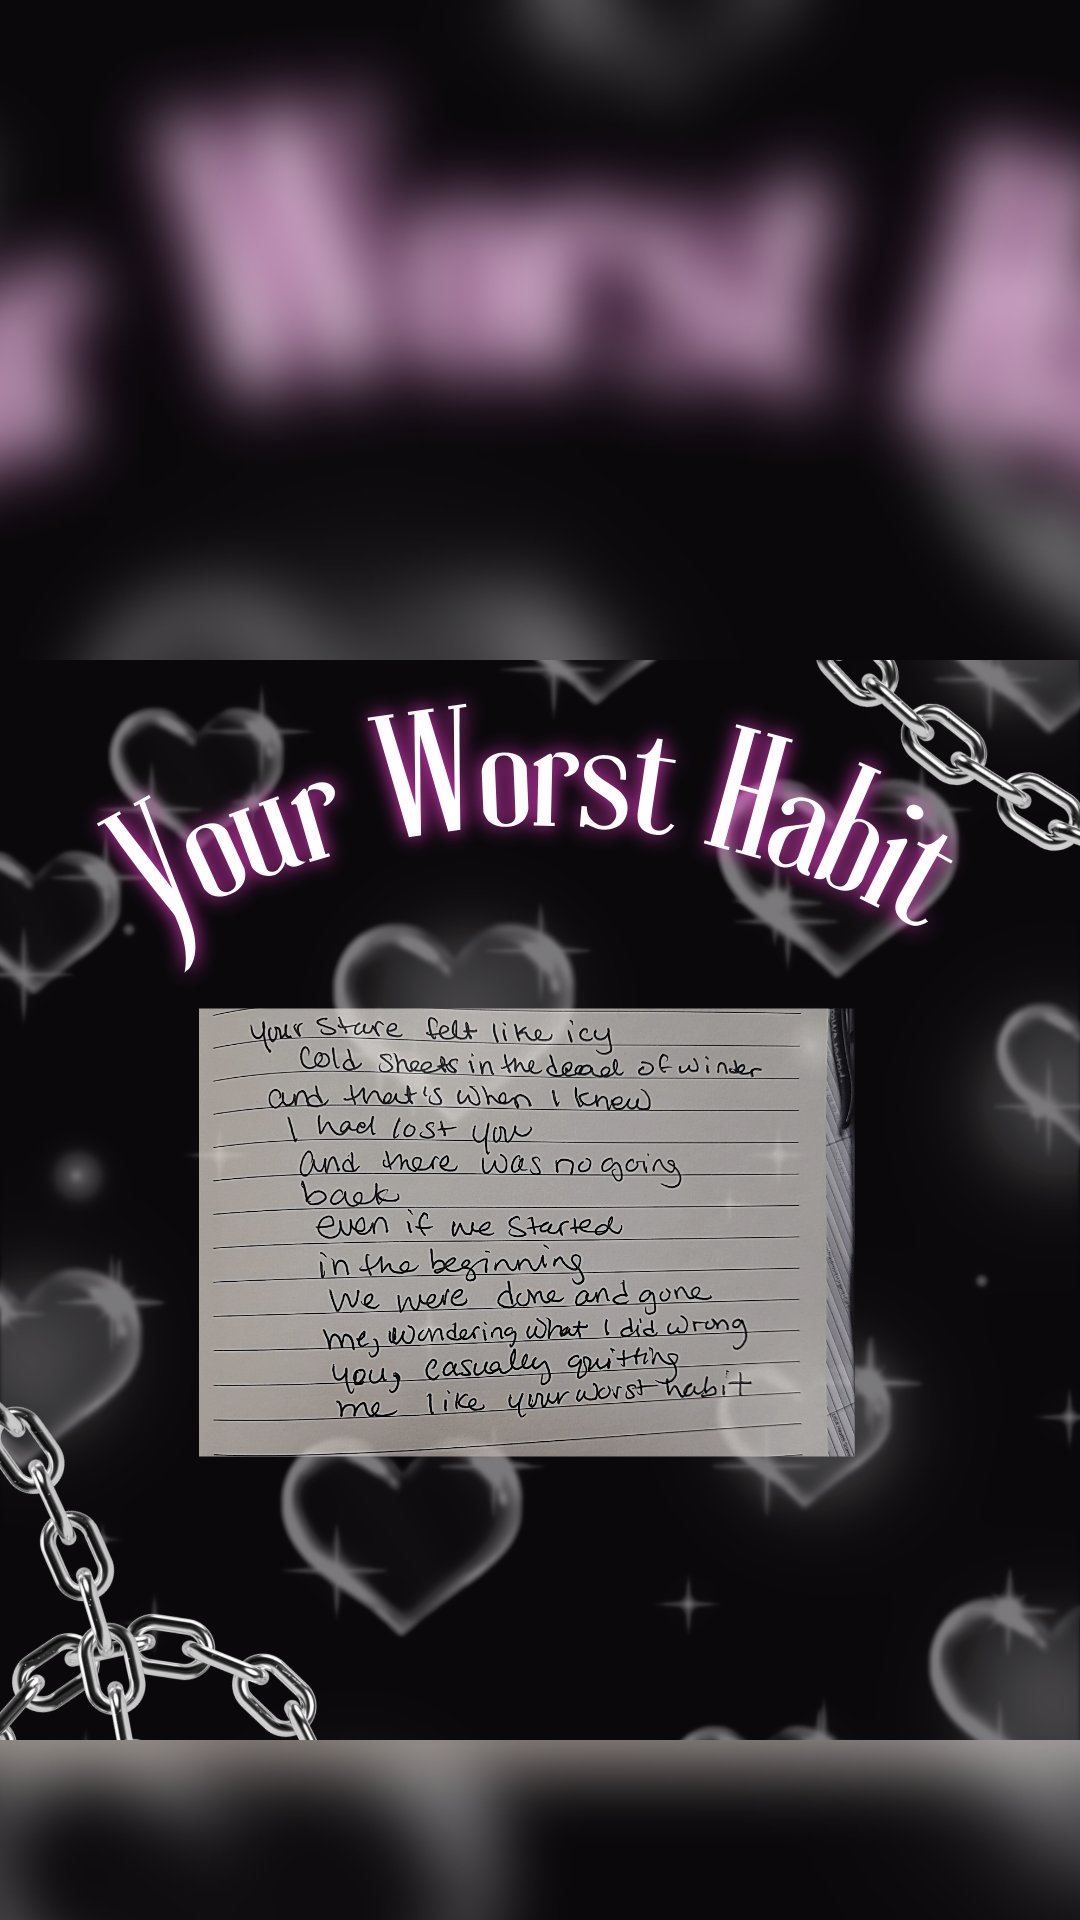 Your Worst Habit
your stare felt like icy
cold sheets in the dead of winter
and that's when I knew
I had lost you
and there was no going
back
even if we started
in the beginning
We were done and gone
me, wondering what I did wrong
you, casually quitting
me like your worst habit